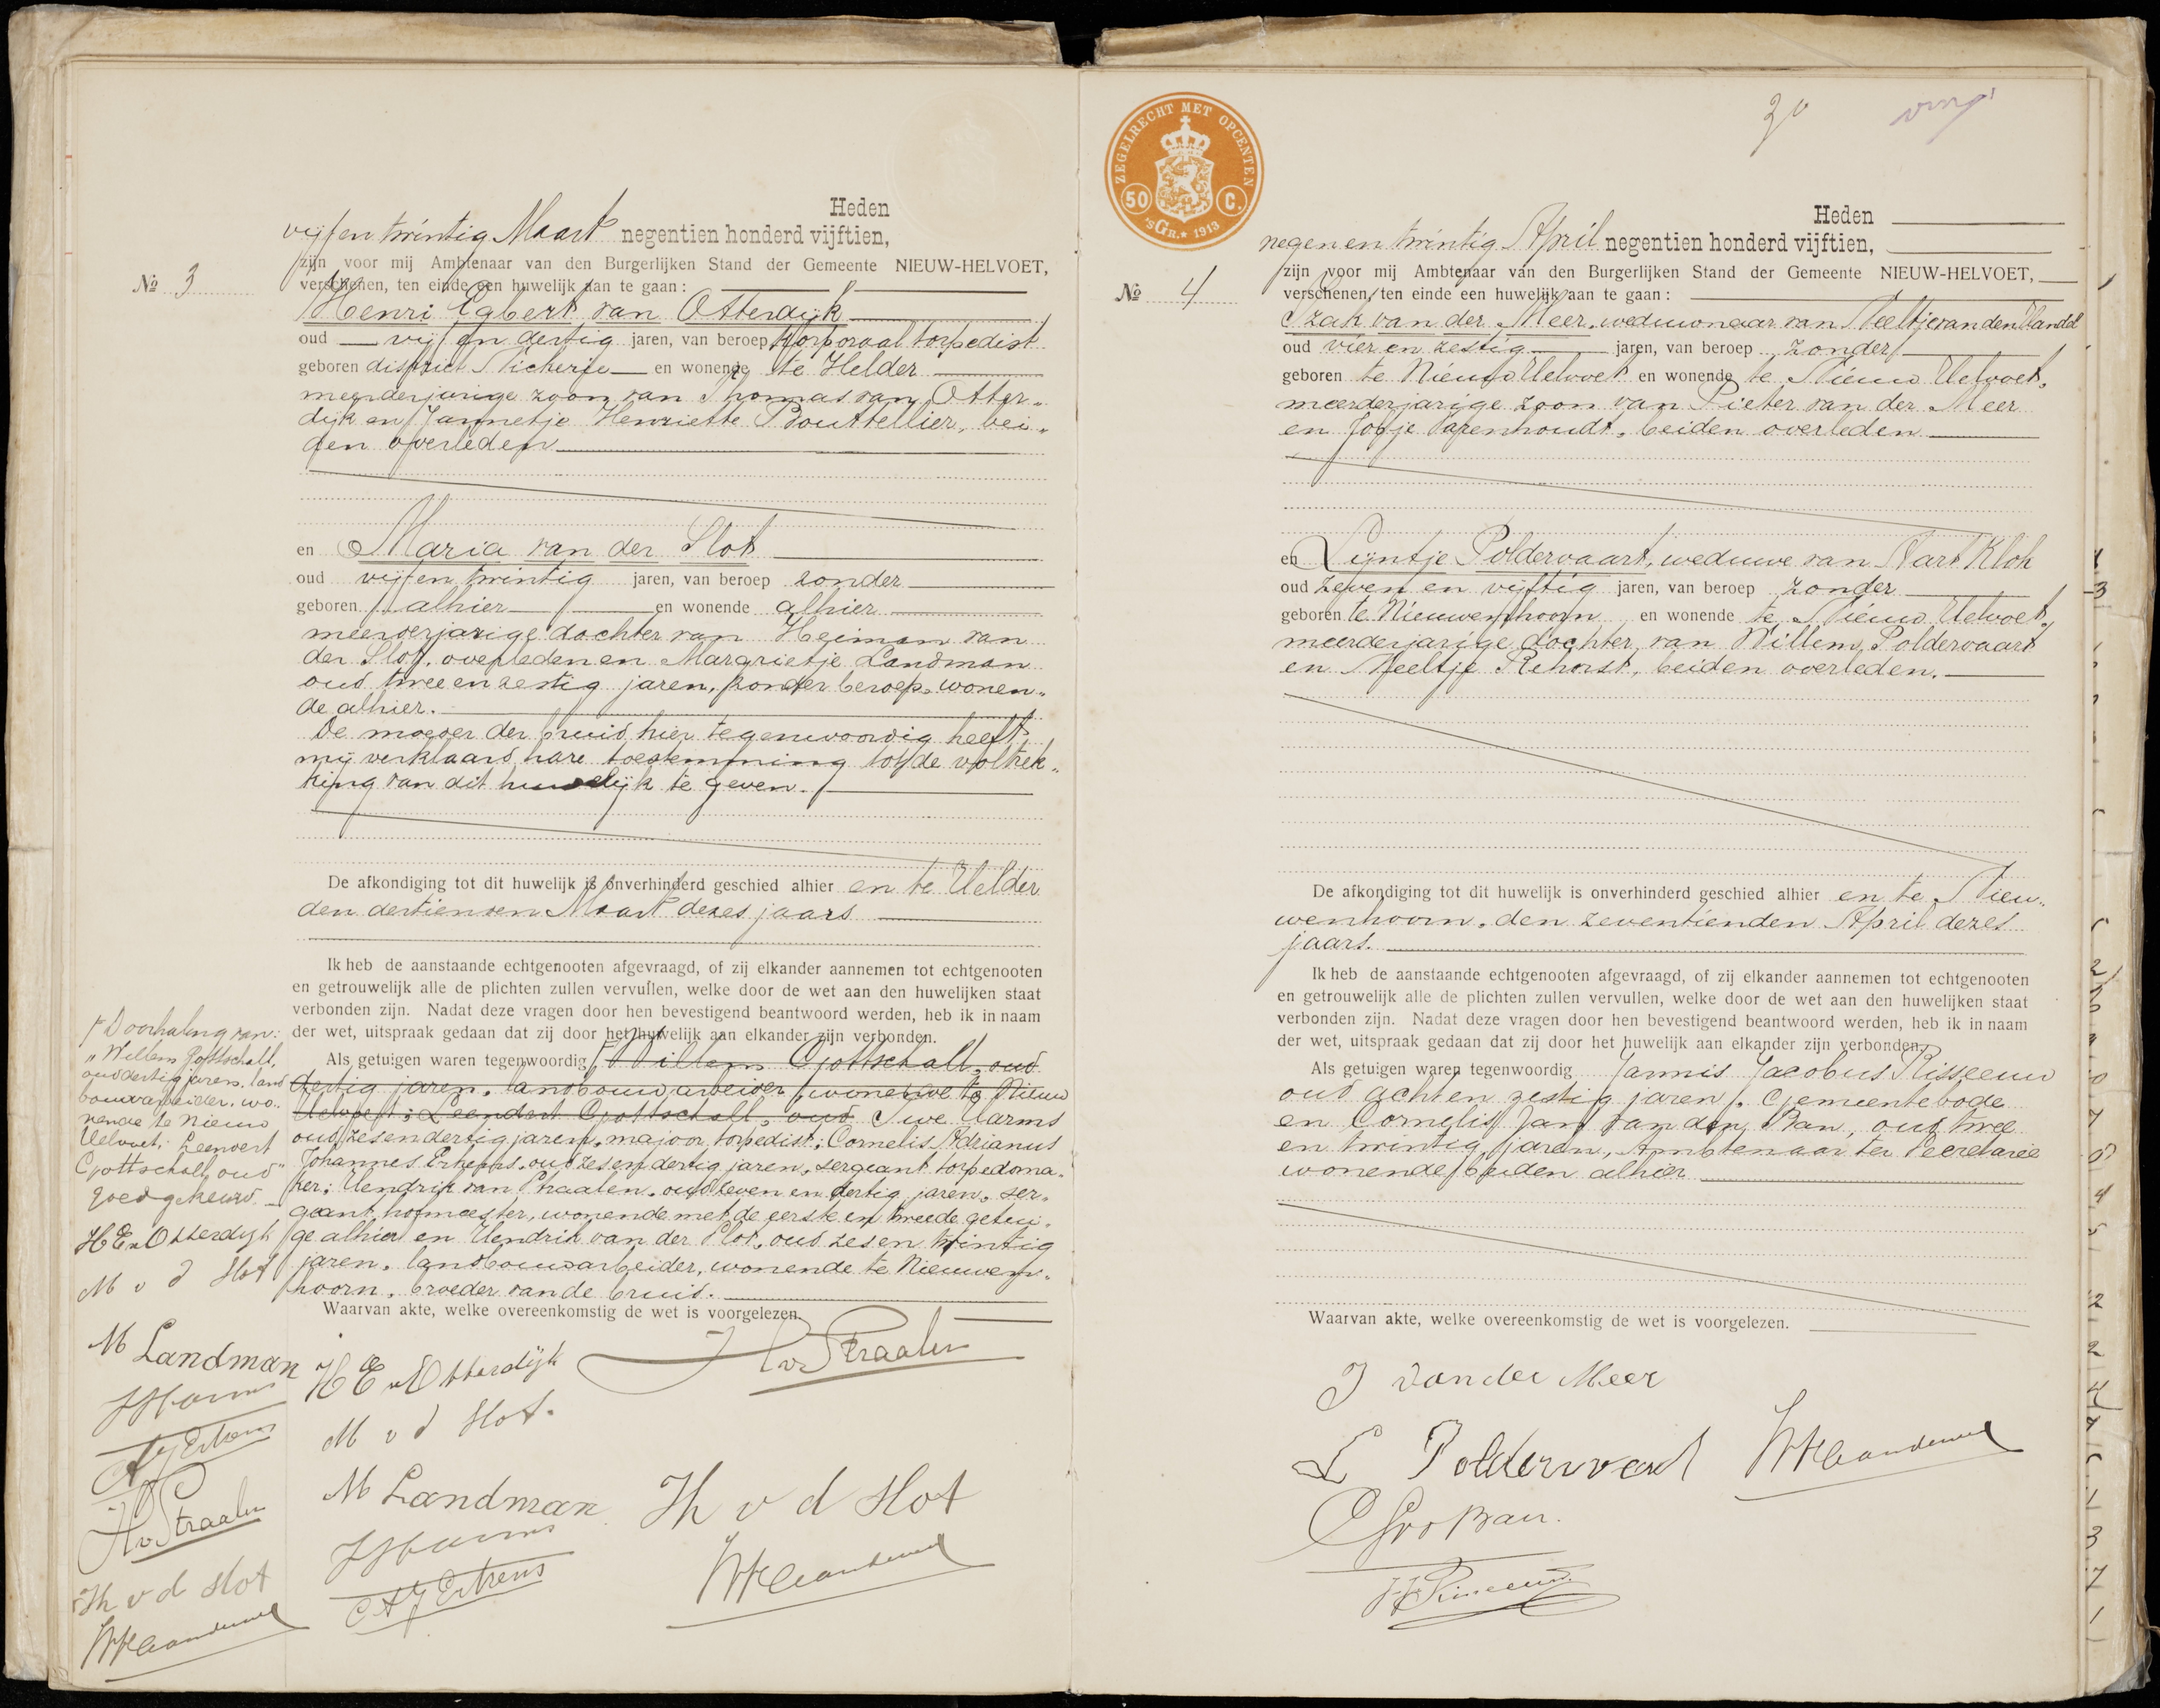 Heden
vijf en twintig Maart negentien honderd vijftien,
zijn voor mij Ambtenaar van den Burgerlijken Stand der Gemeente NIEUW-HELVOET,
№ 3
verschenen, ten einde een huwelijk aan te gaan:
Henri Egbert van Otterdijk
oud vijf en dertig jaren, van beroep Korporaal torpedist
geboren district Nickerie en wonende te Helder
meerderjarige zoon van Thomas van Otter„
dijk en Jannetje Henriette Bouttellier, bei„
den overleden
en Maria van der Slot
oud vijf en twintig jaren, van beroep zonder
geboren alhier en wonende alhier
meerderjarige dochter van Heiman van
der Slot, overleden en Margrietje Landman
oud twee en zestig jaren, zonder beroep, wonen„
de alhier.
De moeder der bruid hier tegenwoordig heeft
mij verklaard hare toestemming tot de voltrek„
king van dit huwelijk te geven.
De afkondiging tot dit huwelijk is onverhinderd geschied alhier en te Helder
den dertienden Maart dezes jaars
Ik heb de aanstaande echtgenooten afgevraagd, of zij elkander aannemen tot echtgenooten
en getrouwelijk alle de plichten zullen vervullen, welke door de wet aan den huwelijken staat
verbonden zijn. Nadat deze vragen door hen bevestigend beantwoord werden, heb ik in naam
der wet, uitspraak gedaan dat zij door het huwelijk aan elkander zijn verbonden.
Als getuigen waren tegenwoordig Willem Gottschall, oud
dertig jaren, landbouwarbeider, wonende te Nieuw
Helvoet; Leendert Gottschall, oud Iwe Harms
oud zes en dertig jaren, majoor torpedist; Cornelis Adrianus
Johannes Erkens, oud zes en dertig jaren, sergeant torpedoma„
ker; Hendrik van Straalen, oud zeven en dertig jaren, ser„
geant hofmeester, wonende met de eerste en tweede getui„
ge alhier en Hendrik van der Slot, oud zes en twintig
jaren, landbouwarbeider, wonende te Nieuwen„
hoorn, broeder van de bruid.
Waarvan akte, welke overeenkomstig de wet is voorgelezen.
Doorhaling van:
„Willem Gottschall,
oud dertig jaren, land
bouwarbeider, wo„
nende te Nieuw
Helvoet; Leendert
Gottschall, oud"
goedgekeurd.
H E v Otterdijk
M v d Slot
M Landman
H v Straalen
H v d Slot
H E v Otterdijk
H v Straalen
M v d Slot.
M Landman
H v d Slot
C A J Erkens
ZEGELRECHT MET OPCENTEN
50 C.
'sGR. 1913
30
Heden
negen en twintig April negentien honderd vijftien,
zijn voor mij Ambtenaar van den Burgerlijken Stand der Gemeente NIEUW-HELVOET,
№ 4
verschenen, ten einde een huwelijk aan te gaan:
Izak van der Meer, weduwnaar van Neeltje van den Handel
oud vier en zestig jaren, van beroep zonder
geboren te Nieuw Helvoet en wonende te Nieuw Helvoet,
meerderjarige zoon van Pieter van der Meer
en Jobje Varenhoudt, beiden overleden
en Lijntje Poldervaart, weduwe van Bart Klok
oud zeven en vijftig jaren, van beroep zonder
geboren te Nieuwenhoorn en wonende te Nieuw Helvoet,
meerderjarige dochter van Willem Poldervaart
en Neeltje Rehorst, beiden overleden.
De afkondiging tot dit huwelijk is onverhinderd geschied alhier en te Nieu„
wenhoorn, den zeventienden April dezes
jaars.
Ik heb de aanstaande echtgenooten afgevraagd, of zij elkander aannemen tot echtgenooten
en getrouwelijk alle de plichten zullen vervullen, welke door de wet aan den huwelijken staat
verbonden zijn. Nadat deze vragen door hen bevestigend beantwoord werden, heb ik in naam
der wet, uitspraak gedaan dat zij door het huwelijk aan elkander zijn verbonden.
Als getuigen waren tegenwoordig Jannis Jacobus Risseeuw
oud acht en zestig jaren, Gemeentebode
en Cornelis Jan van den Ban, oud twee
en twintig jaren, Ambtenaar ter Secretarie
wonende beiden alhier
Waarvan akte, welke overeenkomstig de wet is voorgelezen.
I van der Meer
L Poldervaart